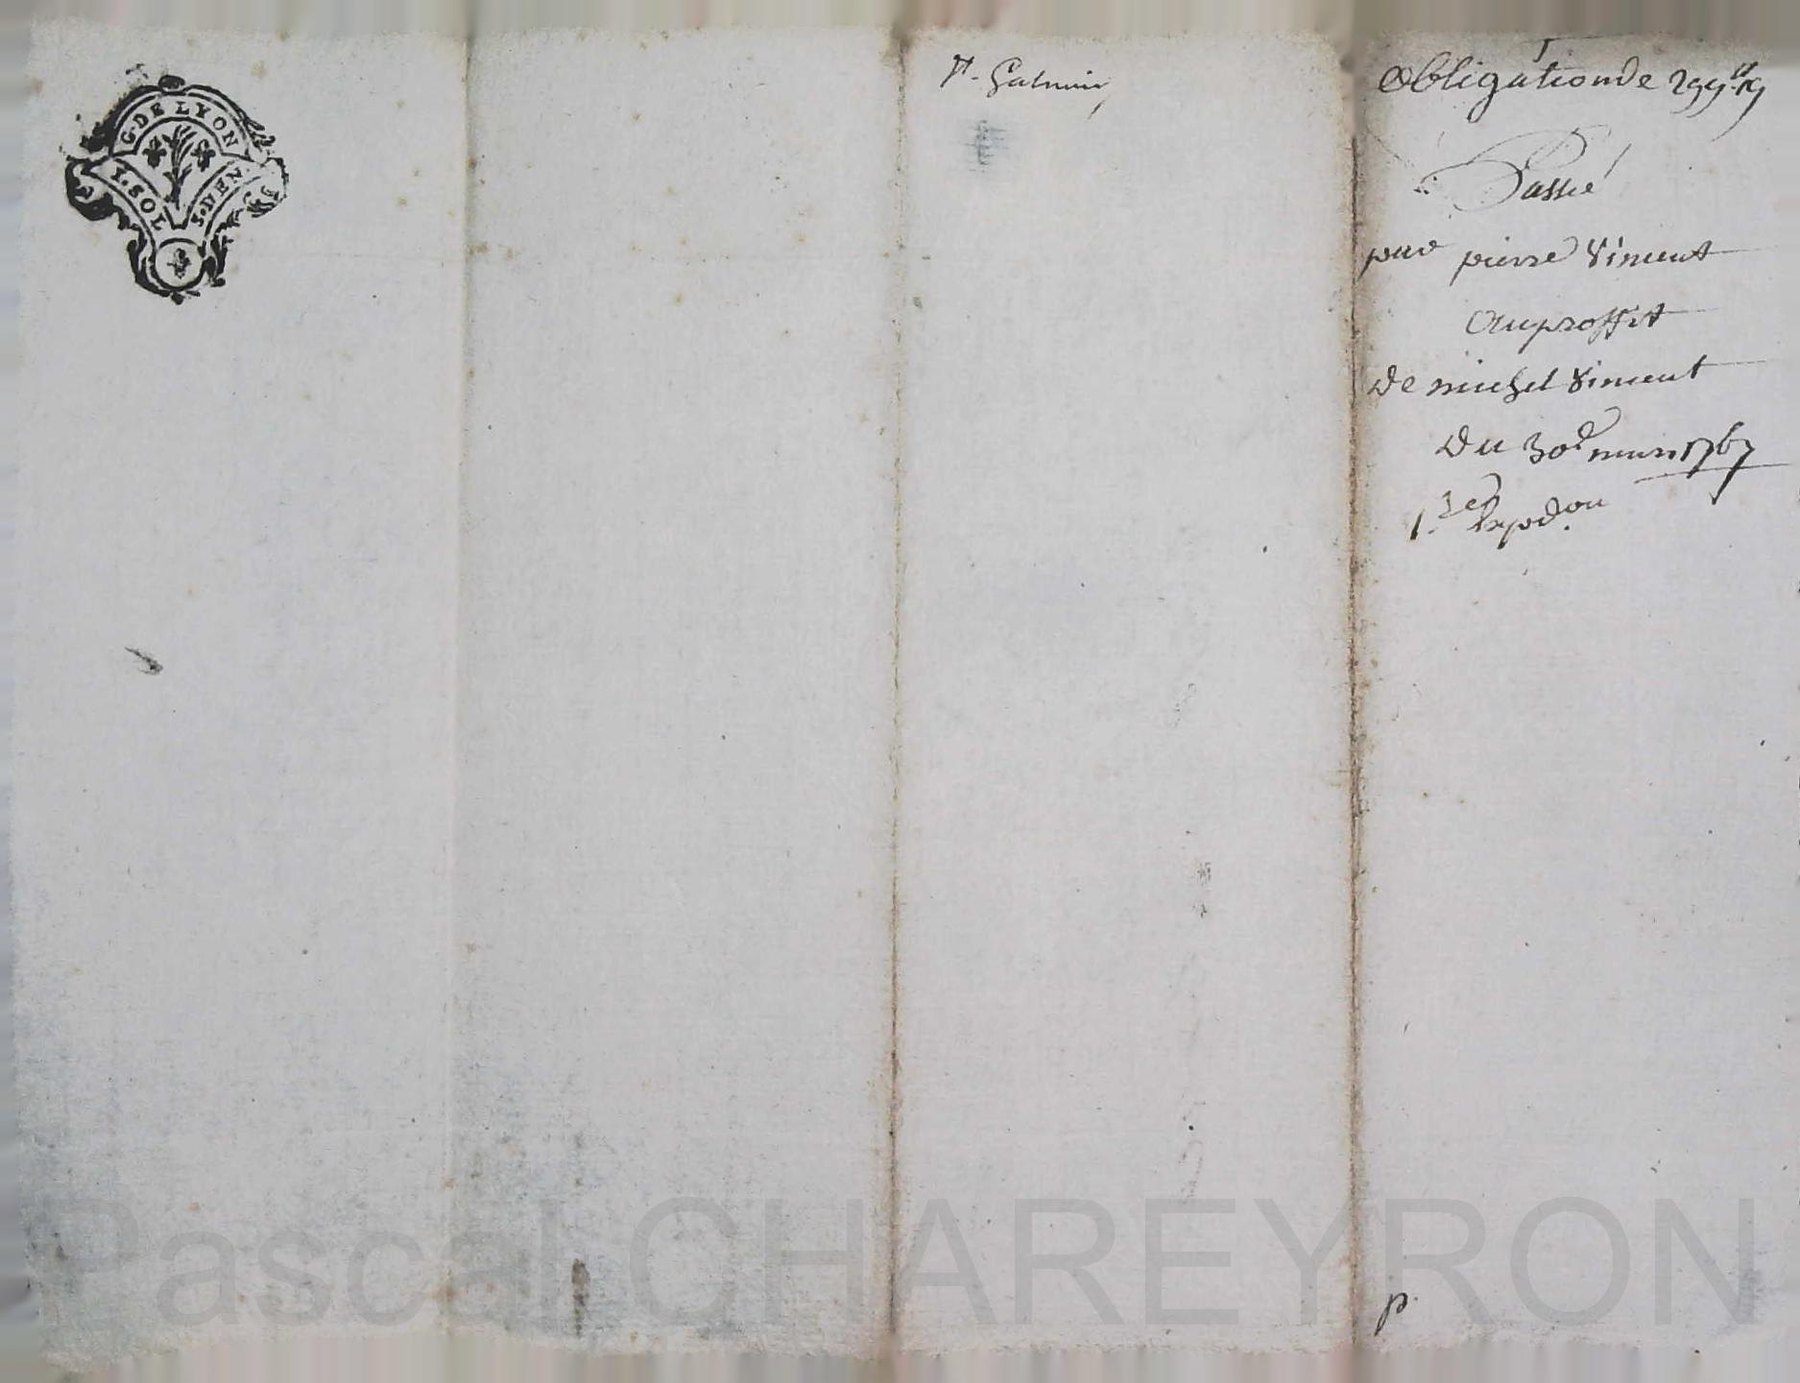 G. DE LYON
1. SOL
S. DEN.
St. Galmier
obligation de 299
Passé
par pierre Vincent
au proffit
de michel Vincent
du 30e mars 1767
1re Expedon
p.
Pascal CHAREYRON